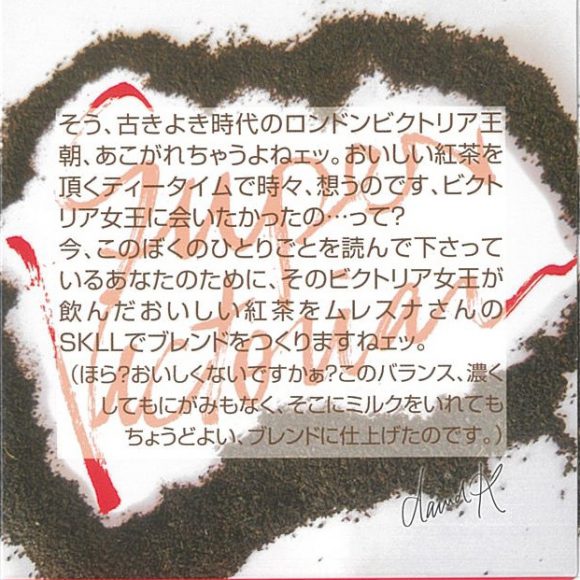 そう、古きよき時代のロンドンビクトリア王
朝、あこがれちゃうよねェッ。おいしい紅茶を
頂くティータイムで時々、想うのです、ビクト
リア女王に会いたかったの…って?
今、このぼくのひとりごとを読んで下さって
いるあなたのために、そのビクトリア女王が
飲んだおいしい紅茶をムレスナさんの
SKLLでブレンドをつくりますねェッ。
(ほら?おいしくないですかぁ?このバランス、濃く
してもにがみもなく、そこにミルクをいれても
ちょうどよい、ブレンドに仕上げたのです。)
Super
Victorian
david K